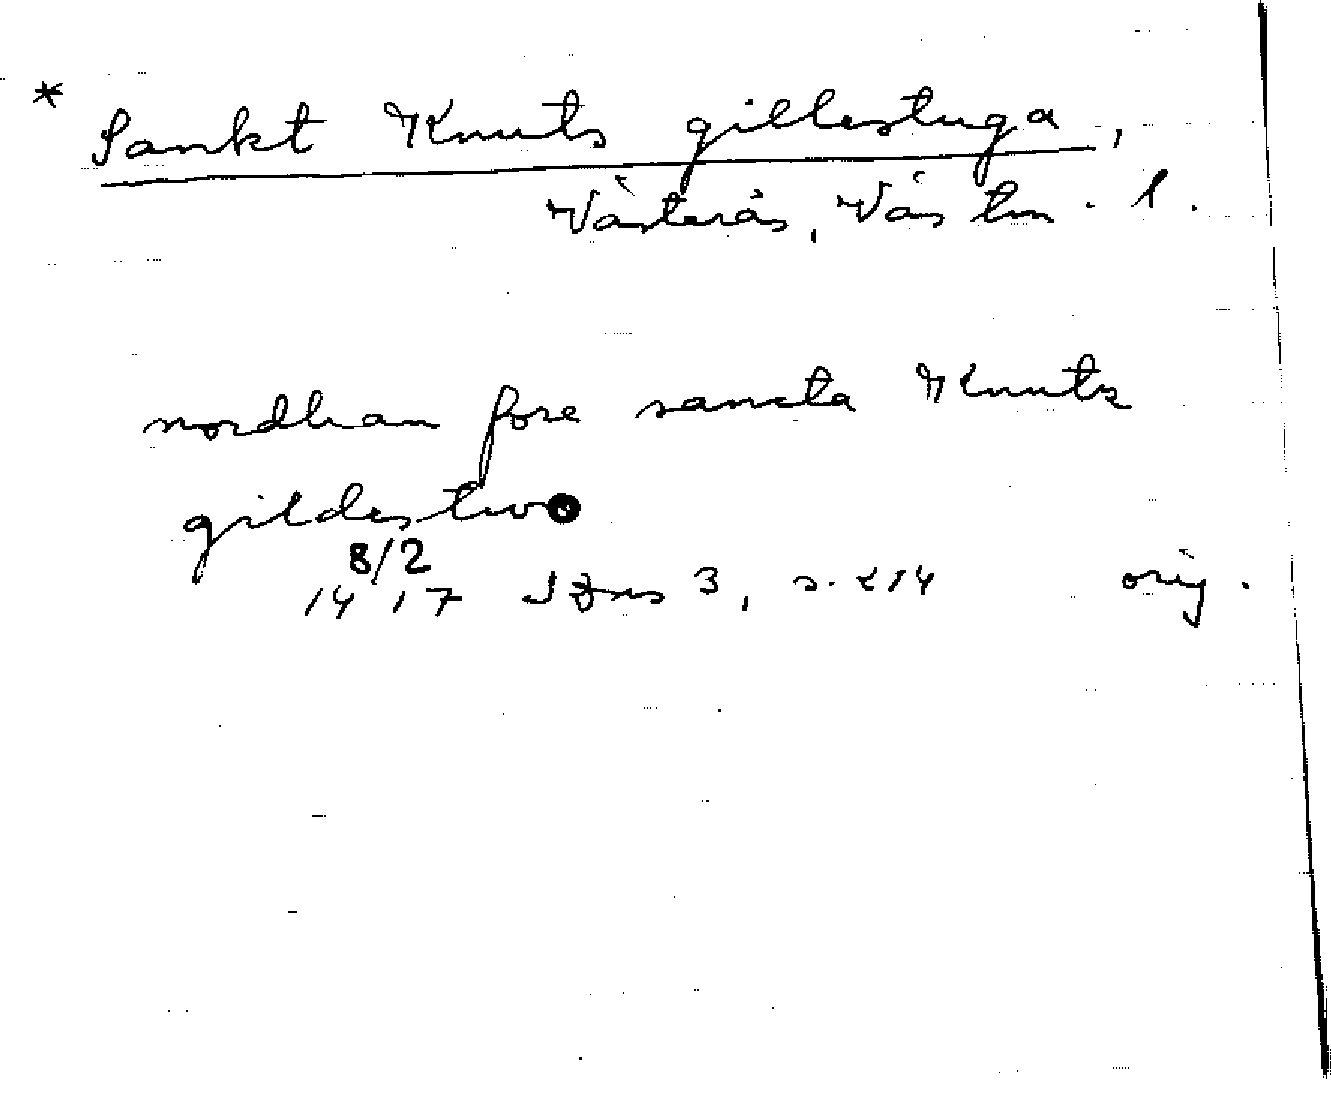 * Sankt Knuts gillestuga,
Västerås, Västm. l.
nordhan fore sancta Knutz
gildestwo
8/2
1417 SDns 3, s. 214 orig.